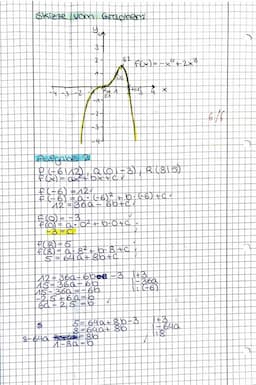 Skizze vom Graphen:
y
f(x)=-x⁴+2x³
-4 -3 -2 -1 1 4 x
-1
-2
-3
-4
6/6
Aufgabe 2
P(-6|12), Q(0|-3), R(8|5)
f(x)=ax²+bx+c
f(-6)=12
f(-6)=a·(-6)²+b·(-6)+c
12=36a-6b+c
f(0)=-3
f(0)=a·0²+b·0+c
-3=c
f(8)=5
f(8)=a·8²+b·8+c
5=64a+8b+c
12=36a-6b-3 |+3
15=36a-6b |-36a
15-36a=-6b |:(-6)
-2,5+6a=b
6a-2,5=b
5=64a+8b-3 |+3
8=64a+8b |-64a
8-64a=8b |:8
1-8a=b